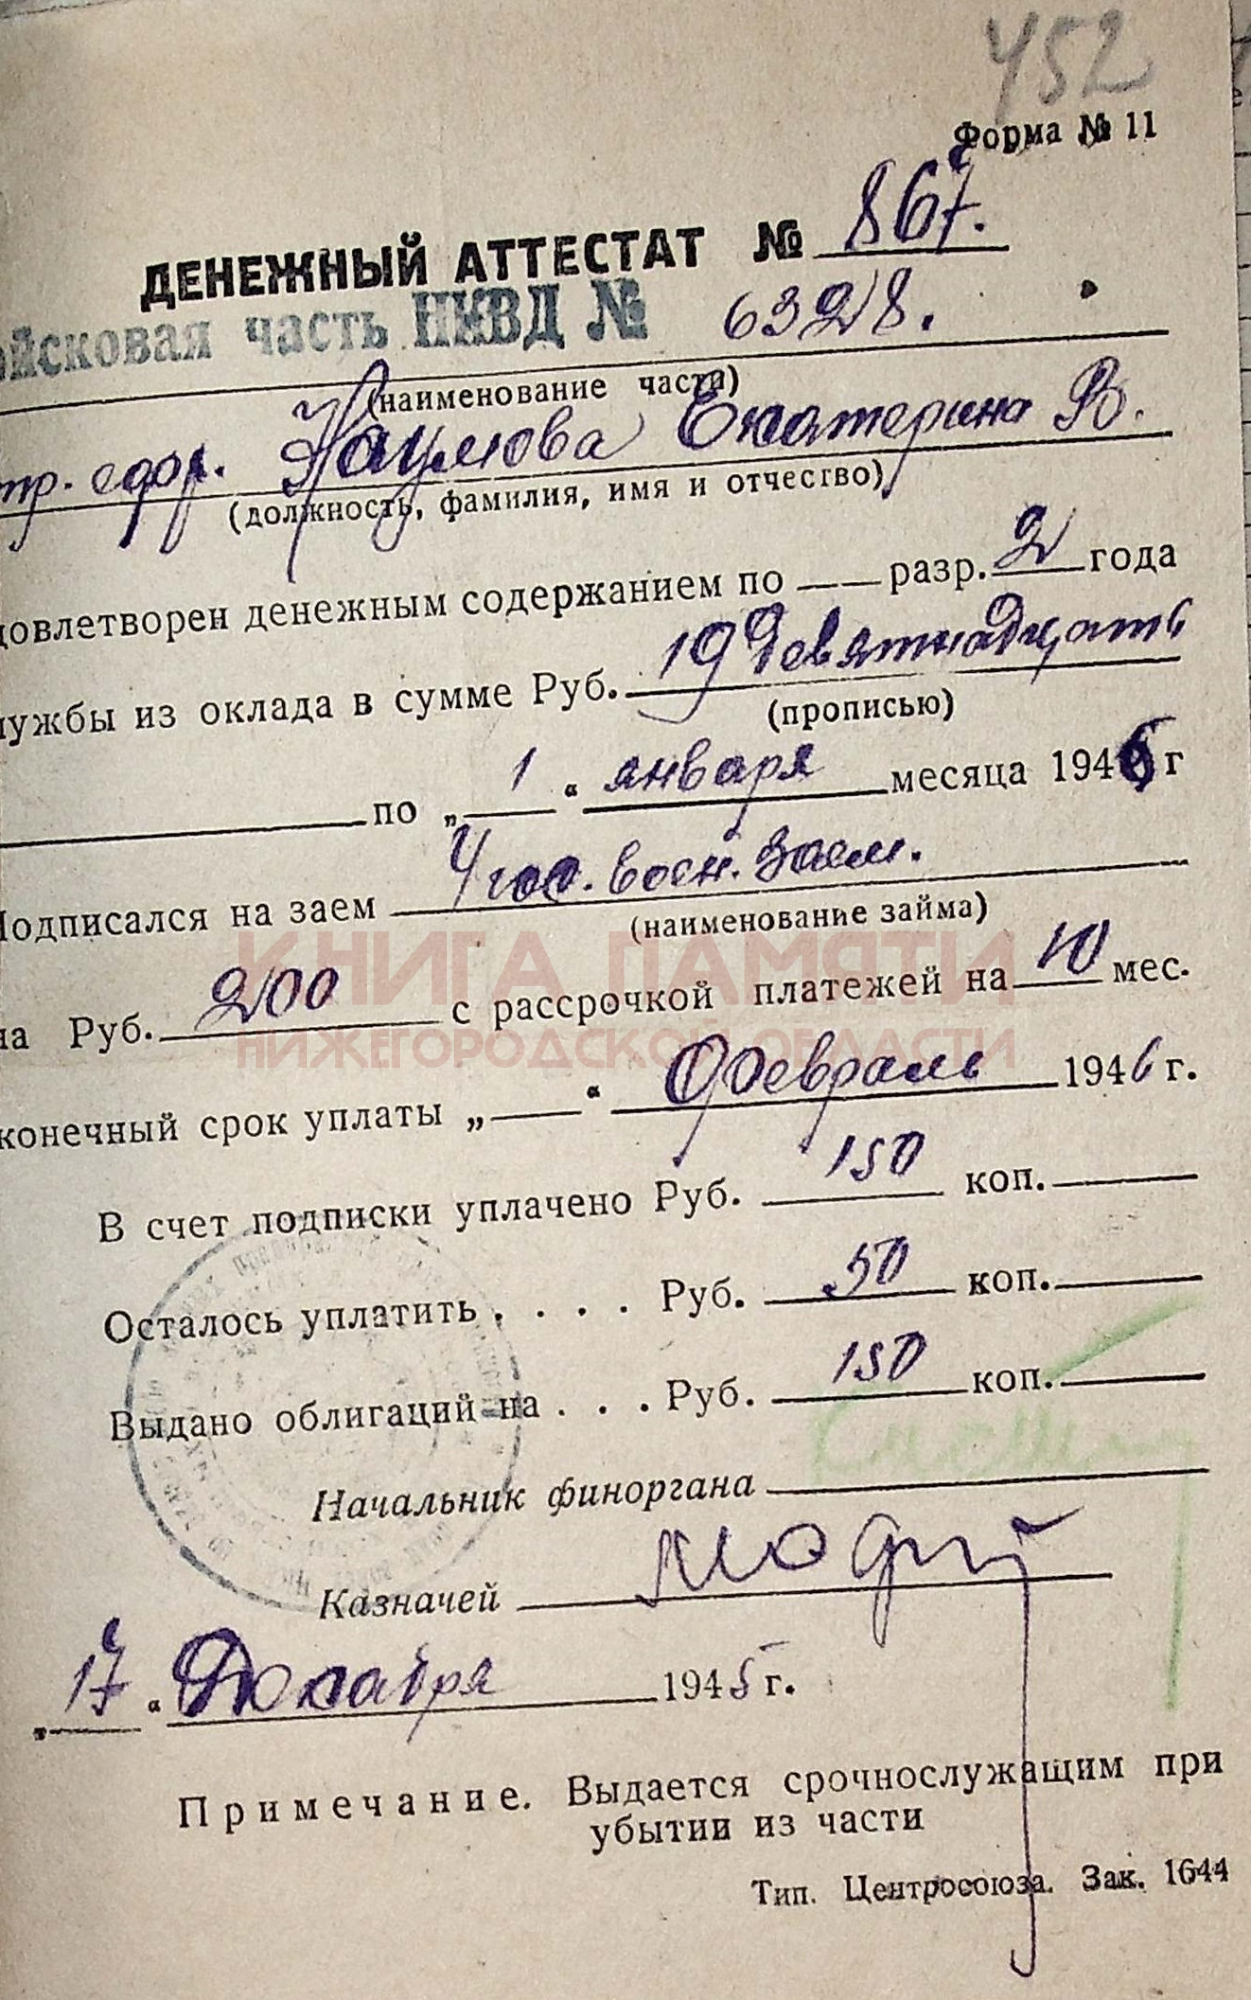 452
Форма № 11
ДЕНЕЖНЫЙ АТТЕСТАТ № 867.
ойсковая часть НКВД № 6328.
(наименование части)
тр. ефр. Наумова Екатерина В.
(должность, фамилия, имя и отчество)
довлетворен денежным содержанием по — разр. 2 года
лужбы из оклада в сумме Руб. 19 Девятнадцать
(прописью)
по „ 1 “ января месяца 1946 г
Подписался на заем 4 гос. воен. заем.
(наименование займа)
КНИГА ПАМЯТИ
на Руб. 200 с рассрочкой платежей на 10 мес.
НИЖЕГОРОДСКОЙ ОБЛАСТИ
конечный срок уплаты „ — “ Февраль 1946 г.
В счет подписки уплачено Руб. 150 коп.
Осталось уплатить . . . . Руб. 50 коп.
Выдано облигаций на . . . Руб. 150 коп.
Начальник финоргана
Казначей
„ 17 “ Декабря 1945 г.
Примечание. Выдается срочнослужащим при
убытии из части
Тип. Центросоюза. Зак. 1644